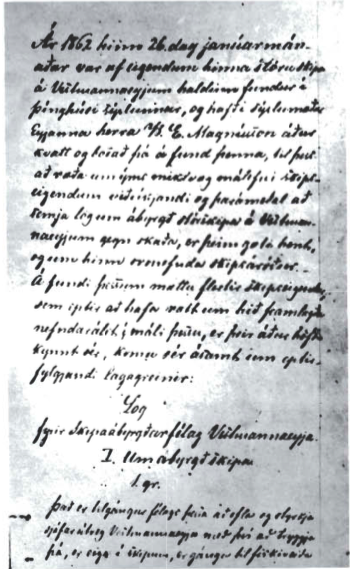 Ár 1862 hinn 26. dag janúarmán-
aðar var af eigendum hinna stóru skipa
á Vestmannaeyjum haldinn fundur í
þinghúsi sýslunnar, og hafði sýslumaður
Eyjanna herra B. E. Magnusson áður
kvatt og boðað þá á fund þenna, til þess
að ræða um ýms mikilvæg málefni skips-
eigendum viðvíkjandi og þarámeðal að
semja lög um ábyrgð stórskipa á Vestman-
naeyjum gegn skaða, er þeim gole hent,
og um hinn svonefnda skipsáróður.
Á fundi þessum mættu flestir skipseigendur,
sem eptir að hafa rædt um hið framlagða
nefndarálit í máli þessu, er þeir áður höfðu
kynnt sér, komu sér ásamt um eptir-
fylgjandi lagagreinir:
Lög
fyrir Skipaábyrgðarfélag Vestmannaeyja.
I. Um ábyrgð skipa
1. gr.
Það er tilgángur félags þessa að efla og styrkja
sjáfarútveg Vestmannaeyja með því að tryggja
þá, er eiga í skipum, er gánga til fiskiveiða